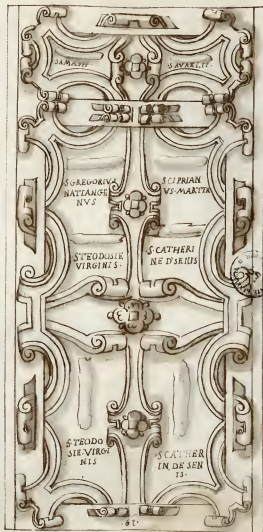 S AVRELII
S GREGORIVS
NATIANGE
NVS
S CIPRIAN
VS·MARTIR
S TEODOSIE
VIRGINIS·
S·CATHERI
NE D'SENIS
S·TEODO
SIE·VIRGI
NIS
S CATHER
IN, DE SEN
IS·